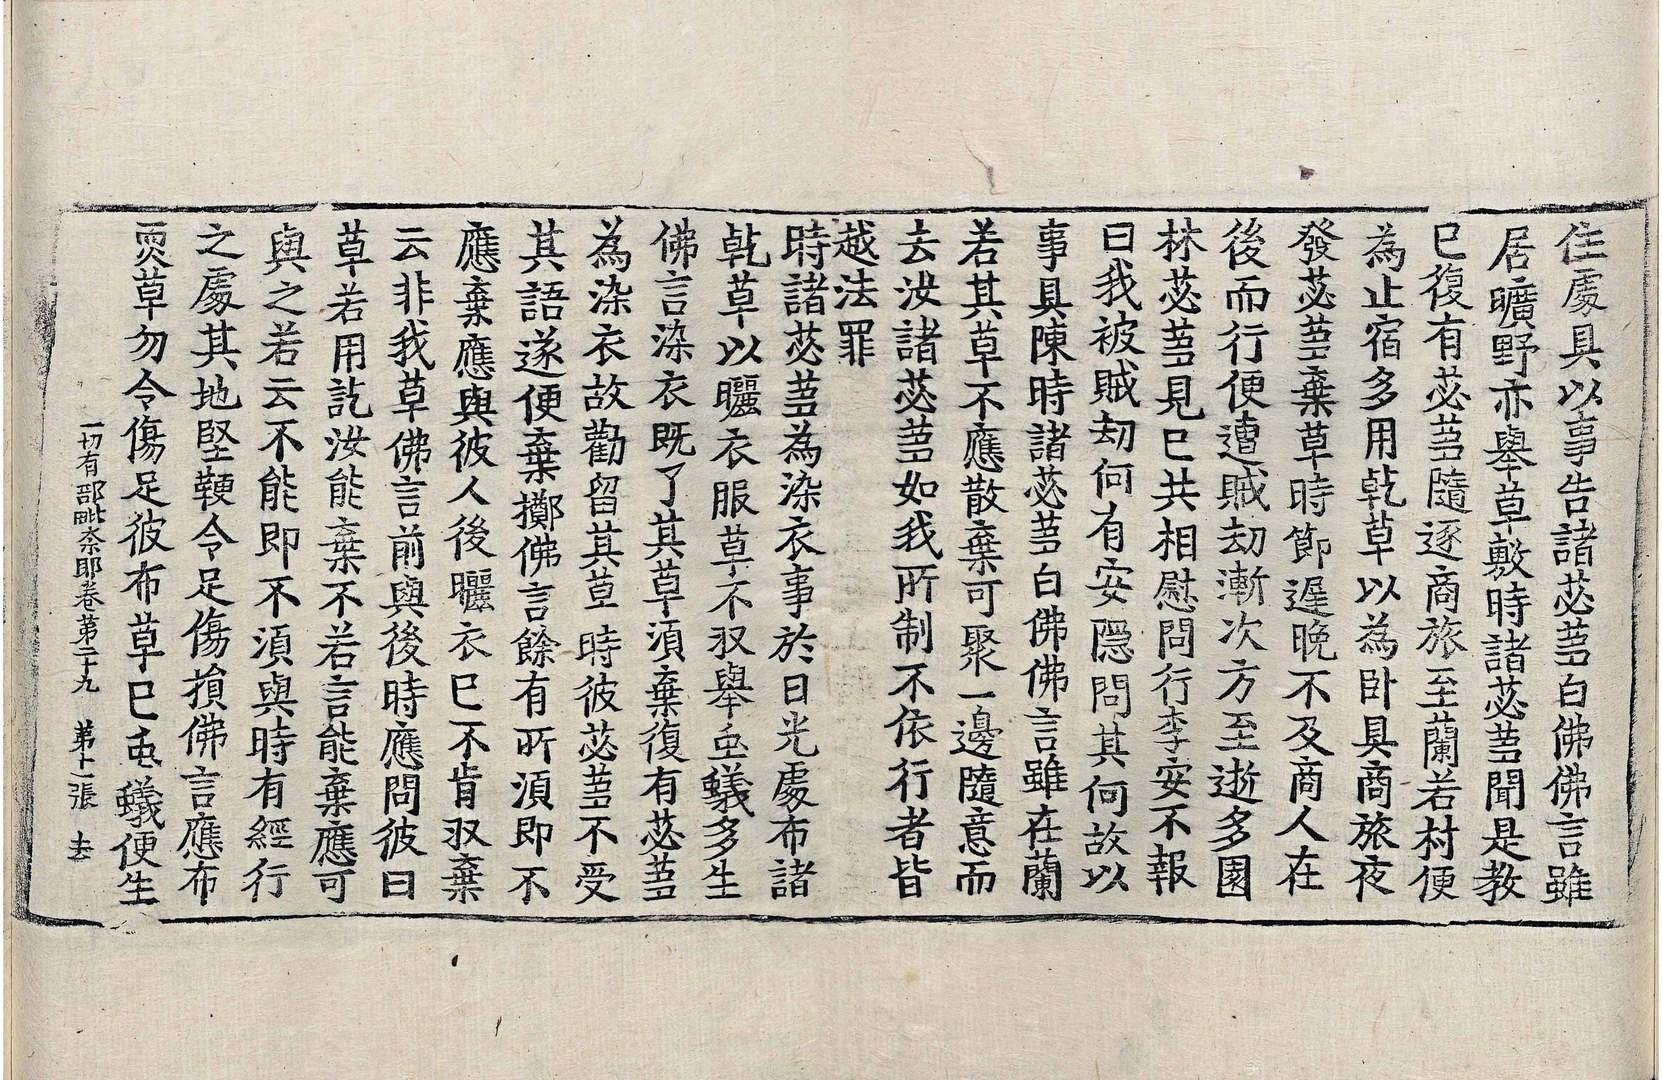 住處具以事告諸苾芻白佛佛言雖
居曠野亦舉草敷時諸苾芻聞是教
已復有苾芻隨逐商旅至蘭若村便
為止宿多用乾草以為卧具商旅夜
發苾芻棄草時節遲晚不及商人在
後而行便遭賊劫漸次方至逝多園
林苾芻見已共相慰問行李安不報
曰我被賊劫何有安隱問其何故以
事具陳時諸苾芻白佛佛言雖在蘭
若其草不應散棄可聚一邊隨意而
去汝諸苾芻如我所制不依行者皆
越法罪
時諸苾芻為染衣事於日光處布諸
乾草以曬衣服草不収舉䖝蟻多生
佛言染衣既了其草湏棄復有苾芻
為染衣故勸留其草時彼苾芻不受
其語遂便棄擲佛言餘有所湏即不
應棄應與彼人後曬衣已不肯収棄
云非我草佛言前與後時應問彼曰
草若用訖汝能棄不若言能棄應可
與之若云不能即不湏與時有經行
之處其地堅鞕令足傷損佛言應布
耎草勿令傷足彼布草已䖝蟻便生
一切有部毗奈耶卷第二十九 第十二張 去